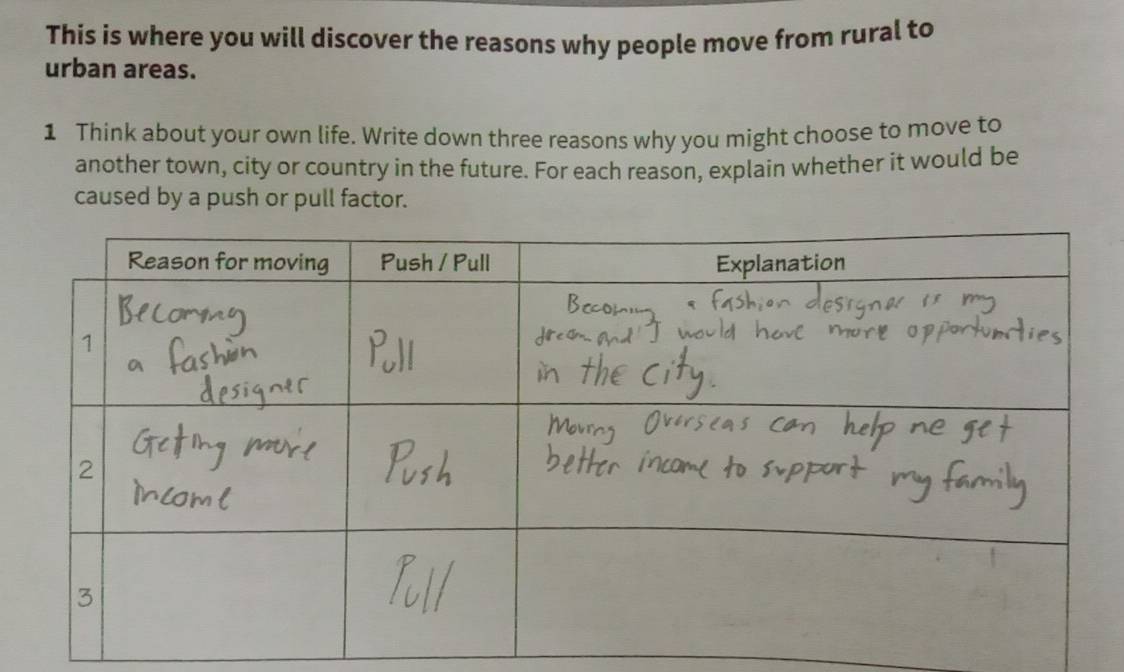 This is where you will discover the reasons why people move from rural to
urban areas.
1 Think about your own life. Write down three reasons why you might choose to move to
another town, city or country in the future. For each reason, explain whether it would be
caused by a push or pull factor.
Reason for moving Push / Pull Explanation
1
Becoming
a fashion
designer
Pull
Becoming a fashion designer is my
dream and I would have more opportunities
in the city.
2
Geting more
income
Push
Moving Overseas can help me get
better income to support my family
3
Pull